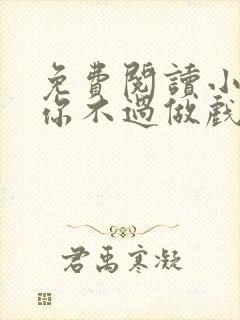 免費閱讀小
你不過做戲
君禹寒凝